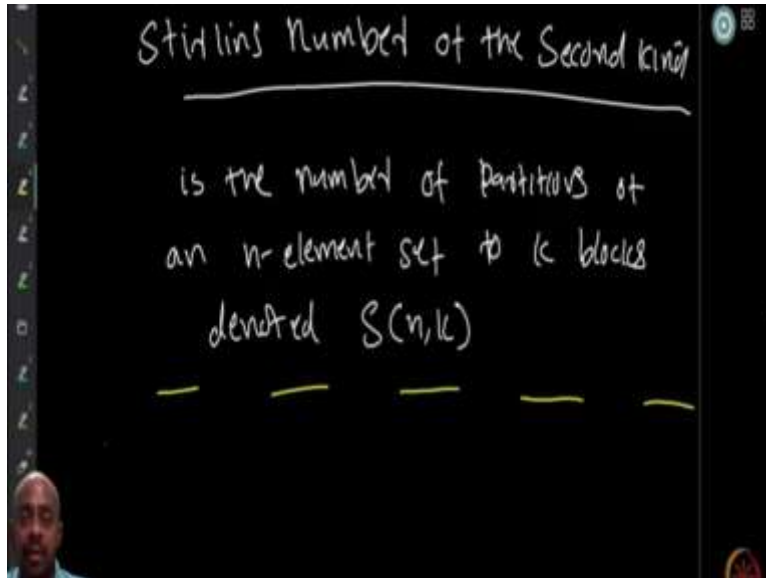 Stirling Number of the Second kind
is the number of partitions of
an n-element set to k blocks
denoted S(n,k)